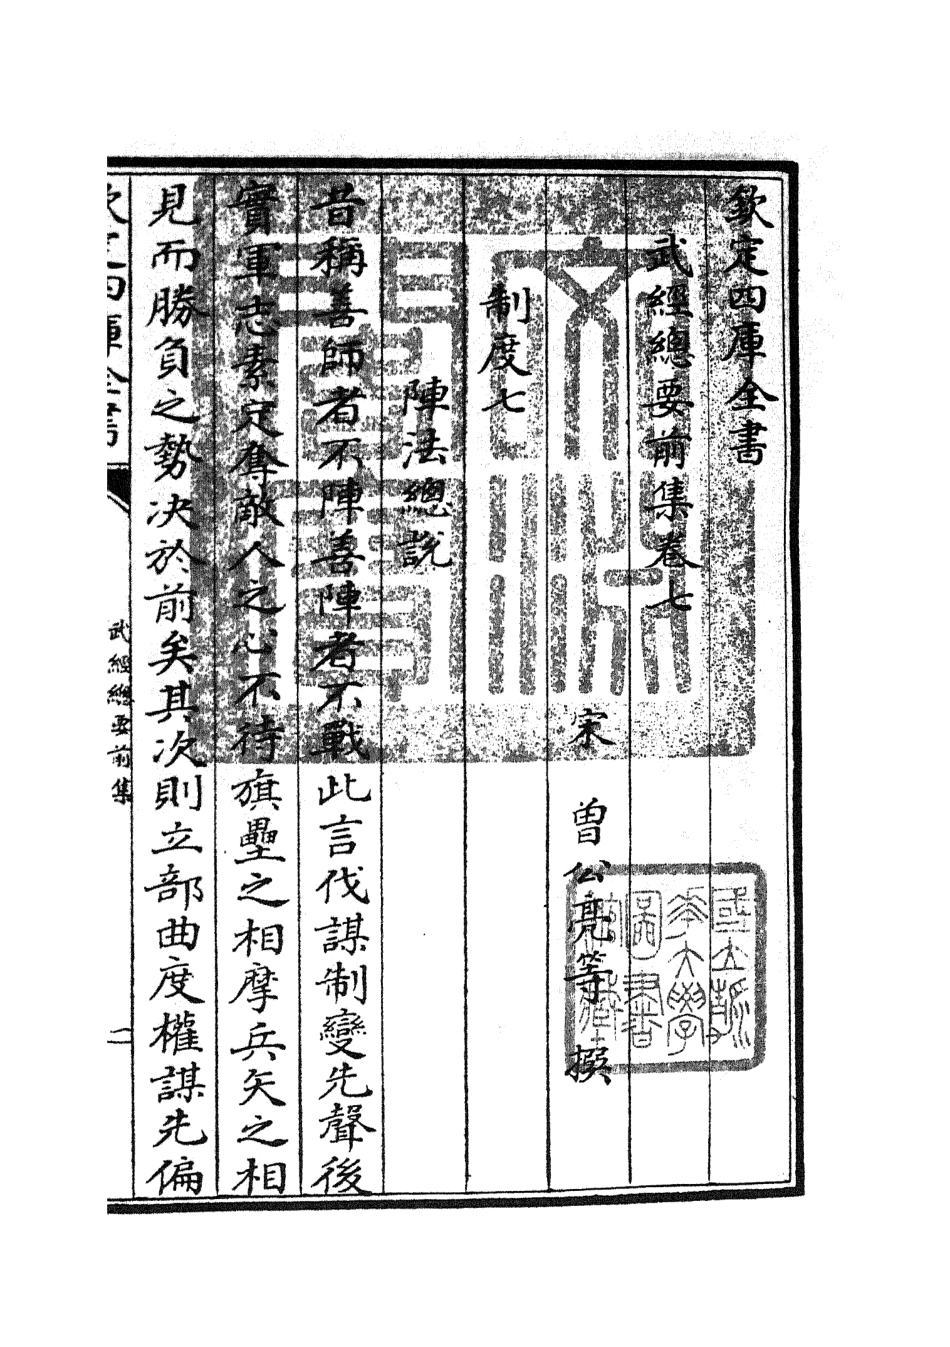 欽定四庫全書
武經總要前集卷七
宋 曾公亮等 撰
制度七
陣法總說
昔稱善師者不陣善陣者不戰此言伐謀制變先聲後
實軍志素定奪敵人之心不待旗壘之相摩兵矢之相
見而勝負之勢决於前矣其次則立部曲度權謀先偏
武經總要前集
文淵閣寶